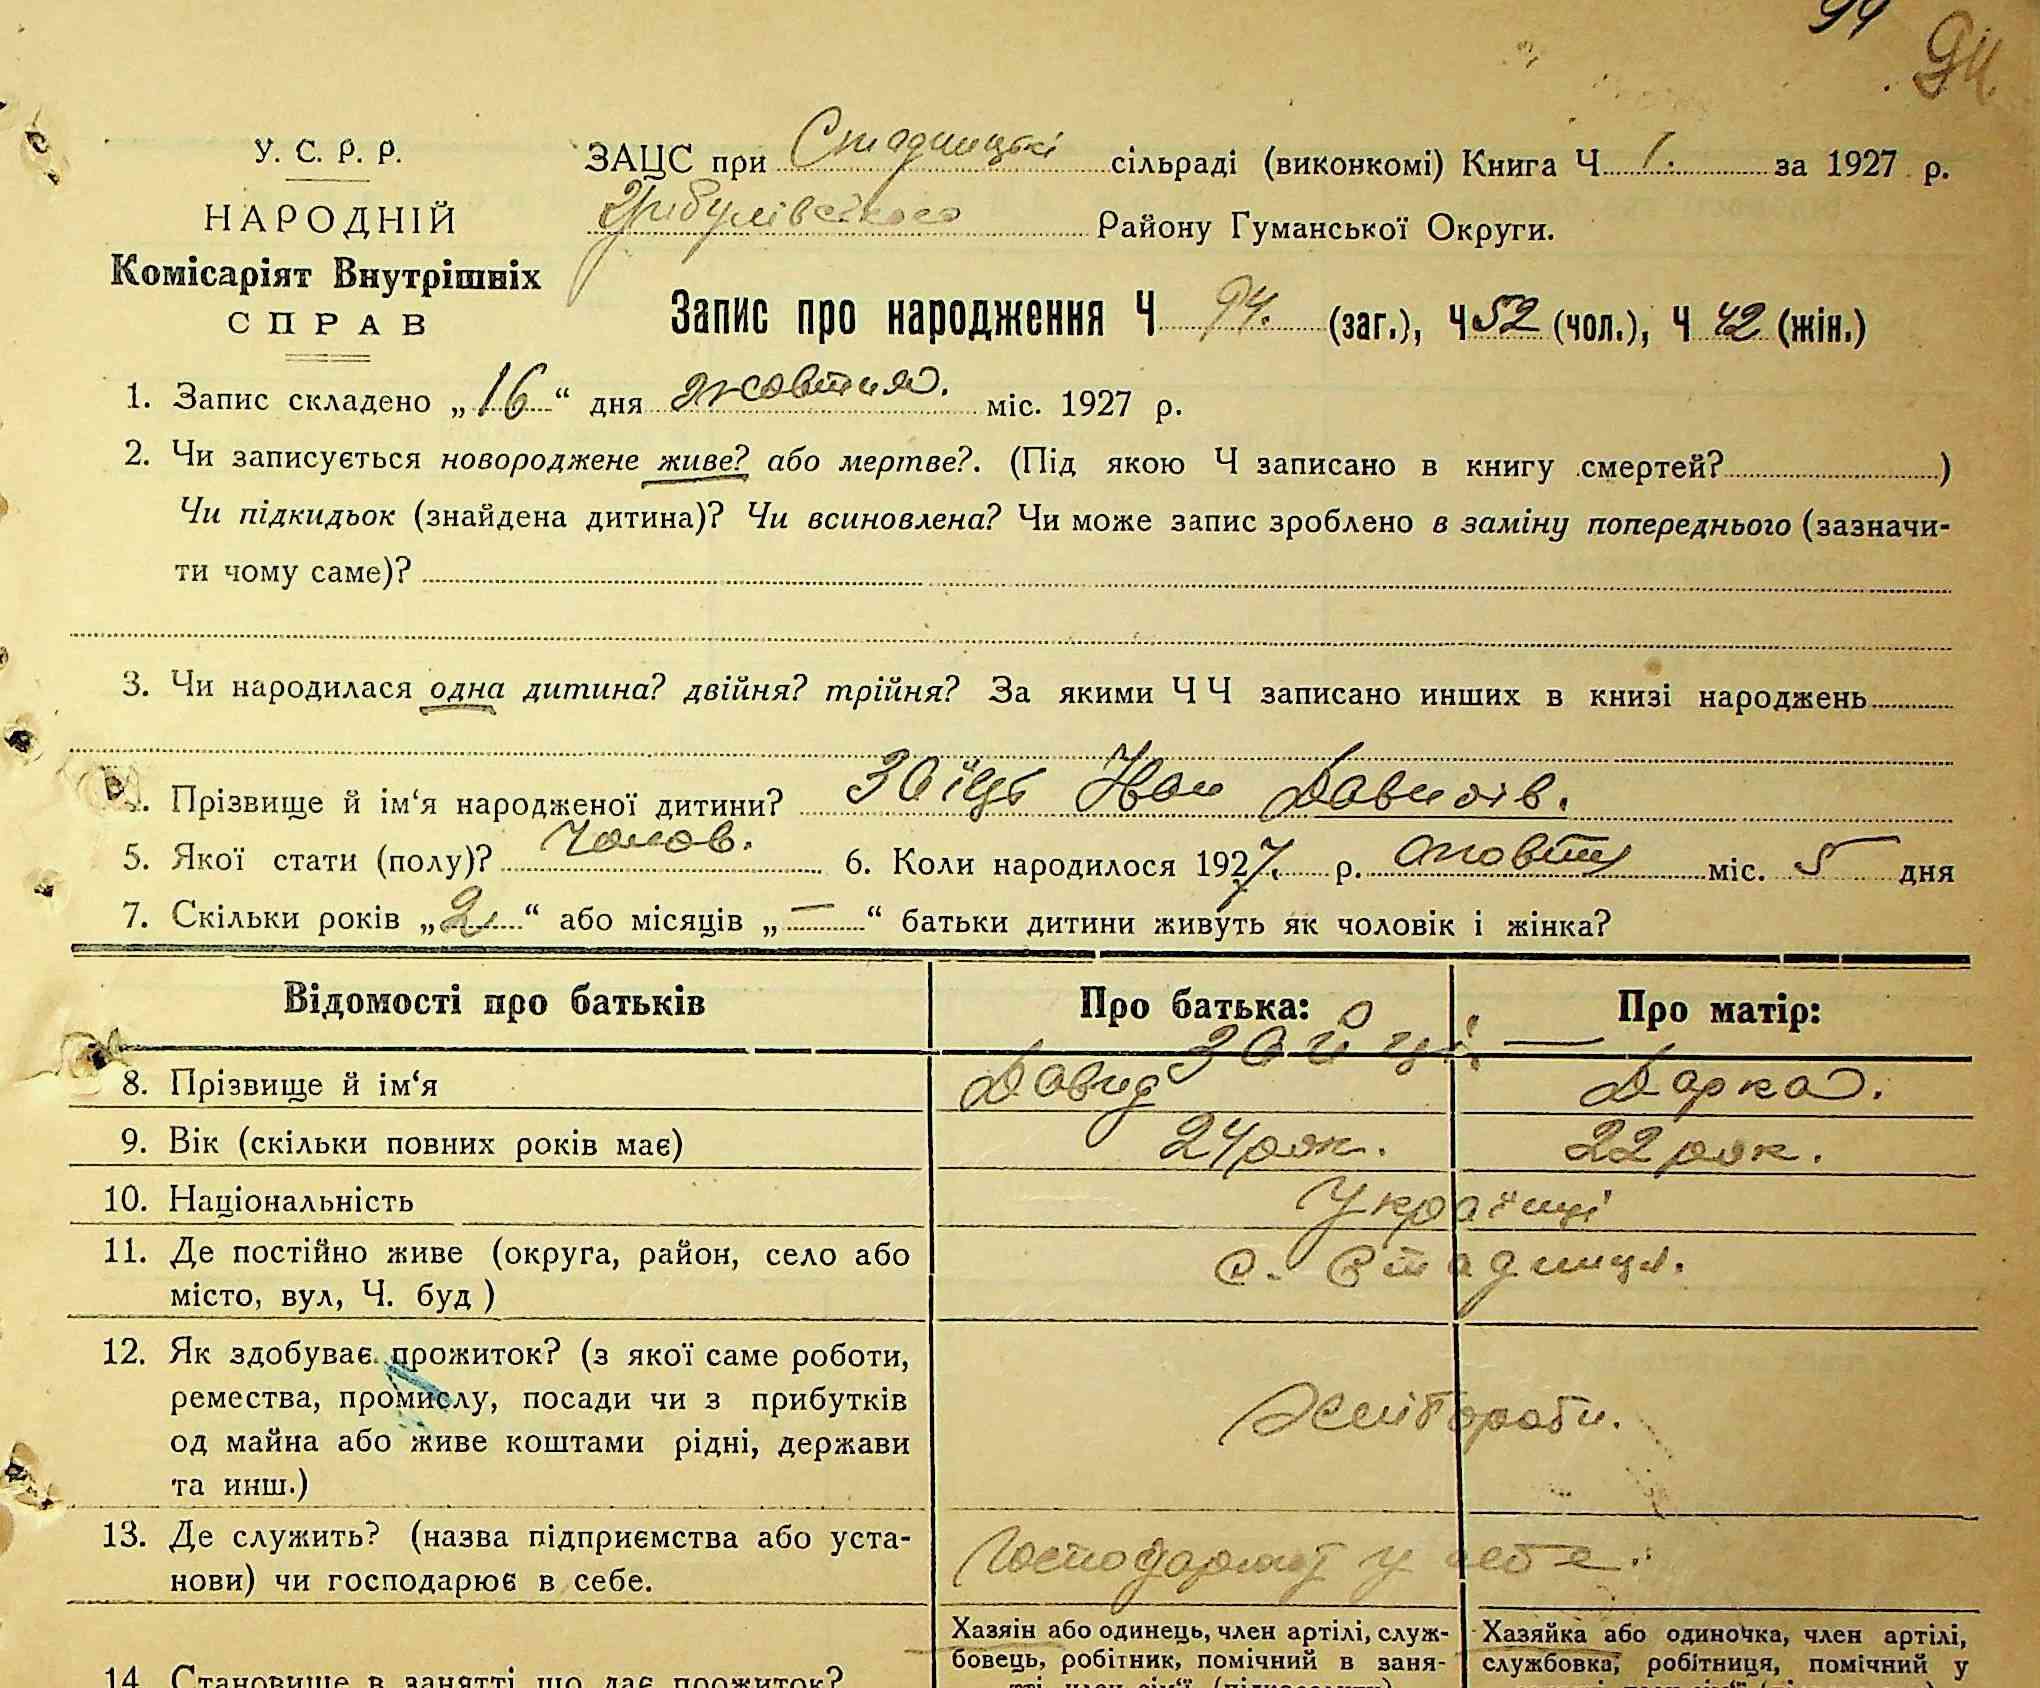 94
94
У. С. Р. Р.
НАРОДНІЙ
Комісаріят Внутрішніх
СПРАВ
ЗАЦС при Стадницькі сільраді (виконкомі) Книга Ч 1. за 1927 р.
Цибулівського Району Гуманської Округи.
Запис про народження Ч 94. (заг.), Ч 52 (чол.), Ч 42 (жін.)
1. Запис складено „16“ дня жовтня. міс. 1927 р.
2. Чи записується новороджене живе? або мертве?. (Під якою Ч записано в книгу смертей? )
Чи підкидьок (знайдена дитина)? Чи всиновлена? Чи може запис зроблено в заміну попереднього (зазначи-
ти чому саме)?
3. Чи народилася одна дитина? двійня? трійня? За якими ЧЧ записано инших в книзі народжень
Прізвище й ім‘я народженої дитини? Заїць Іван Давидів.
5. Якої стати (полу)? Чолов. 6. Коли народилося 1927. р. жовт міс. 5 дня
7. Скільки років „2“ або місяців „—“ батьки дитини живуть як чоловік і жінка?
Відомості про батьків Про батька: Про матір:
Зайці. —
8. Прізвище й ім‘я Давид Дарка.
9. Вік (скільки повних років має) 24 рок. 22 рок.
10. Національність Українці
11. Де постійно живе (округа, район, село або с. Стадниця.
місто, вул, Ч. буд )
12. Як здобуває прожиток? (з якої саме роботи,
ремества, промислу, посади чи з прибутків
од майна або живе коштами рідні, держави
та инш.)
13. Де служить? (назва підприємства або уста- Господарюют у себе.
нови) чи господарює в себе.
Хазяїн або одинець, член артілі, служ- Хазяйка або одиночка, член артілі,
бовець, робітник, помічний в заня- службовка, робітниця, помічний у
14. Становище в занятті що дає прожиток?